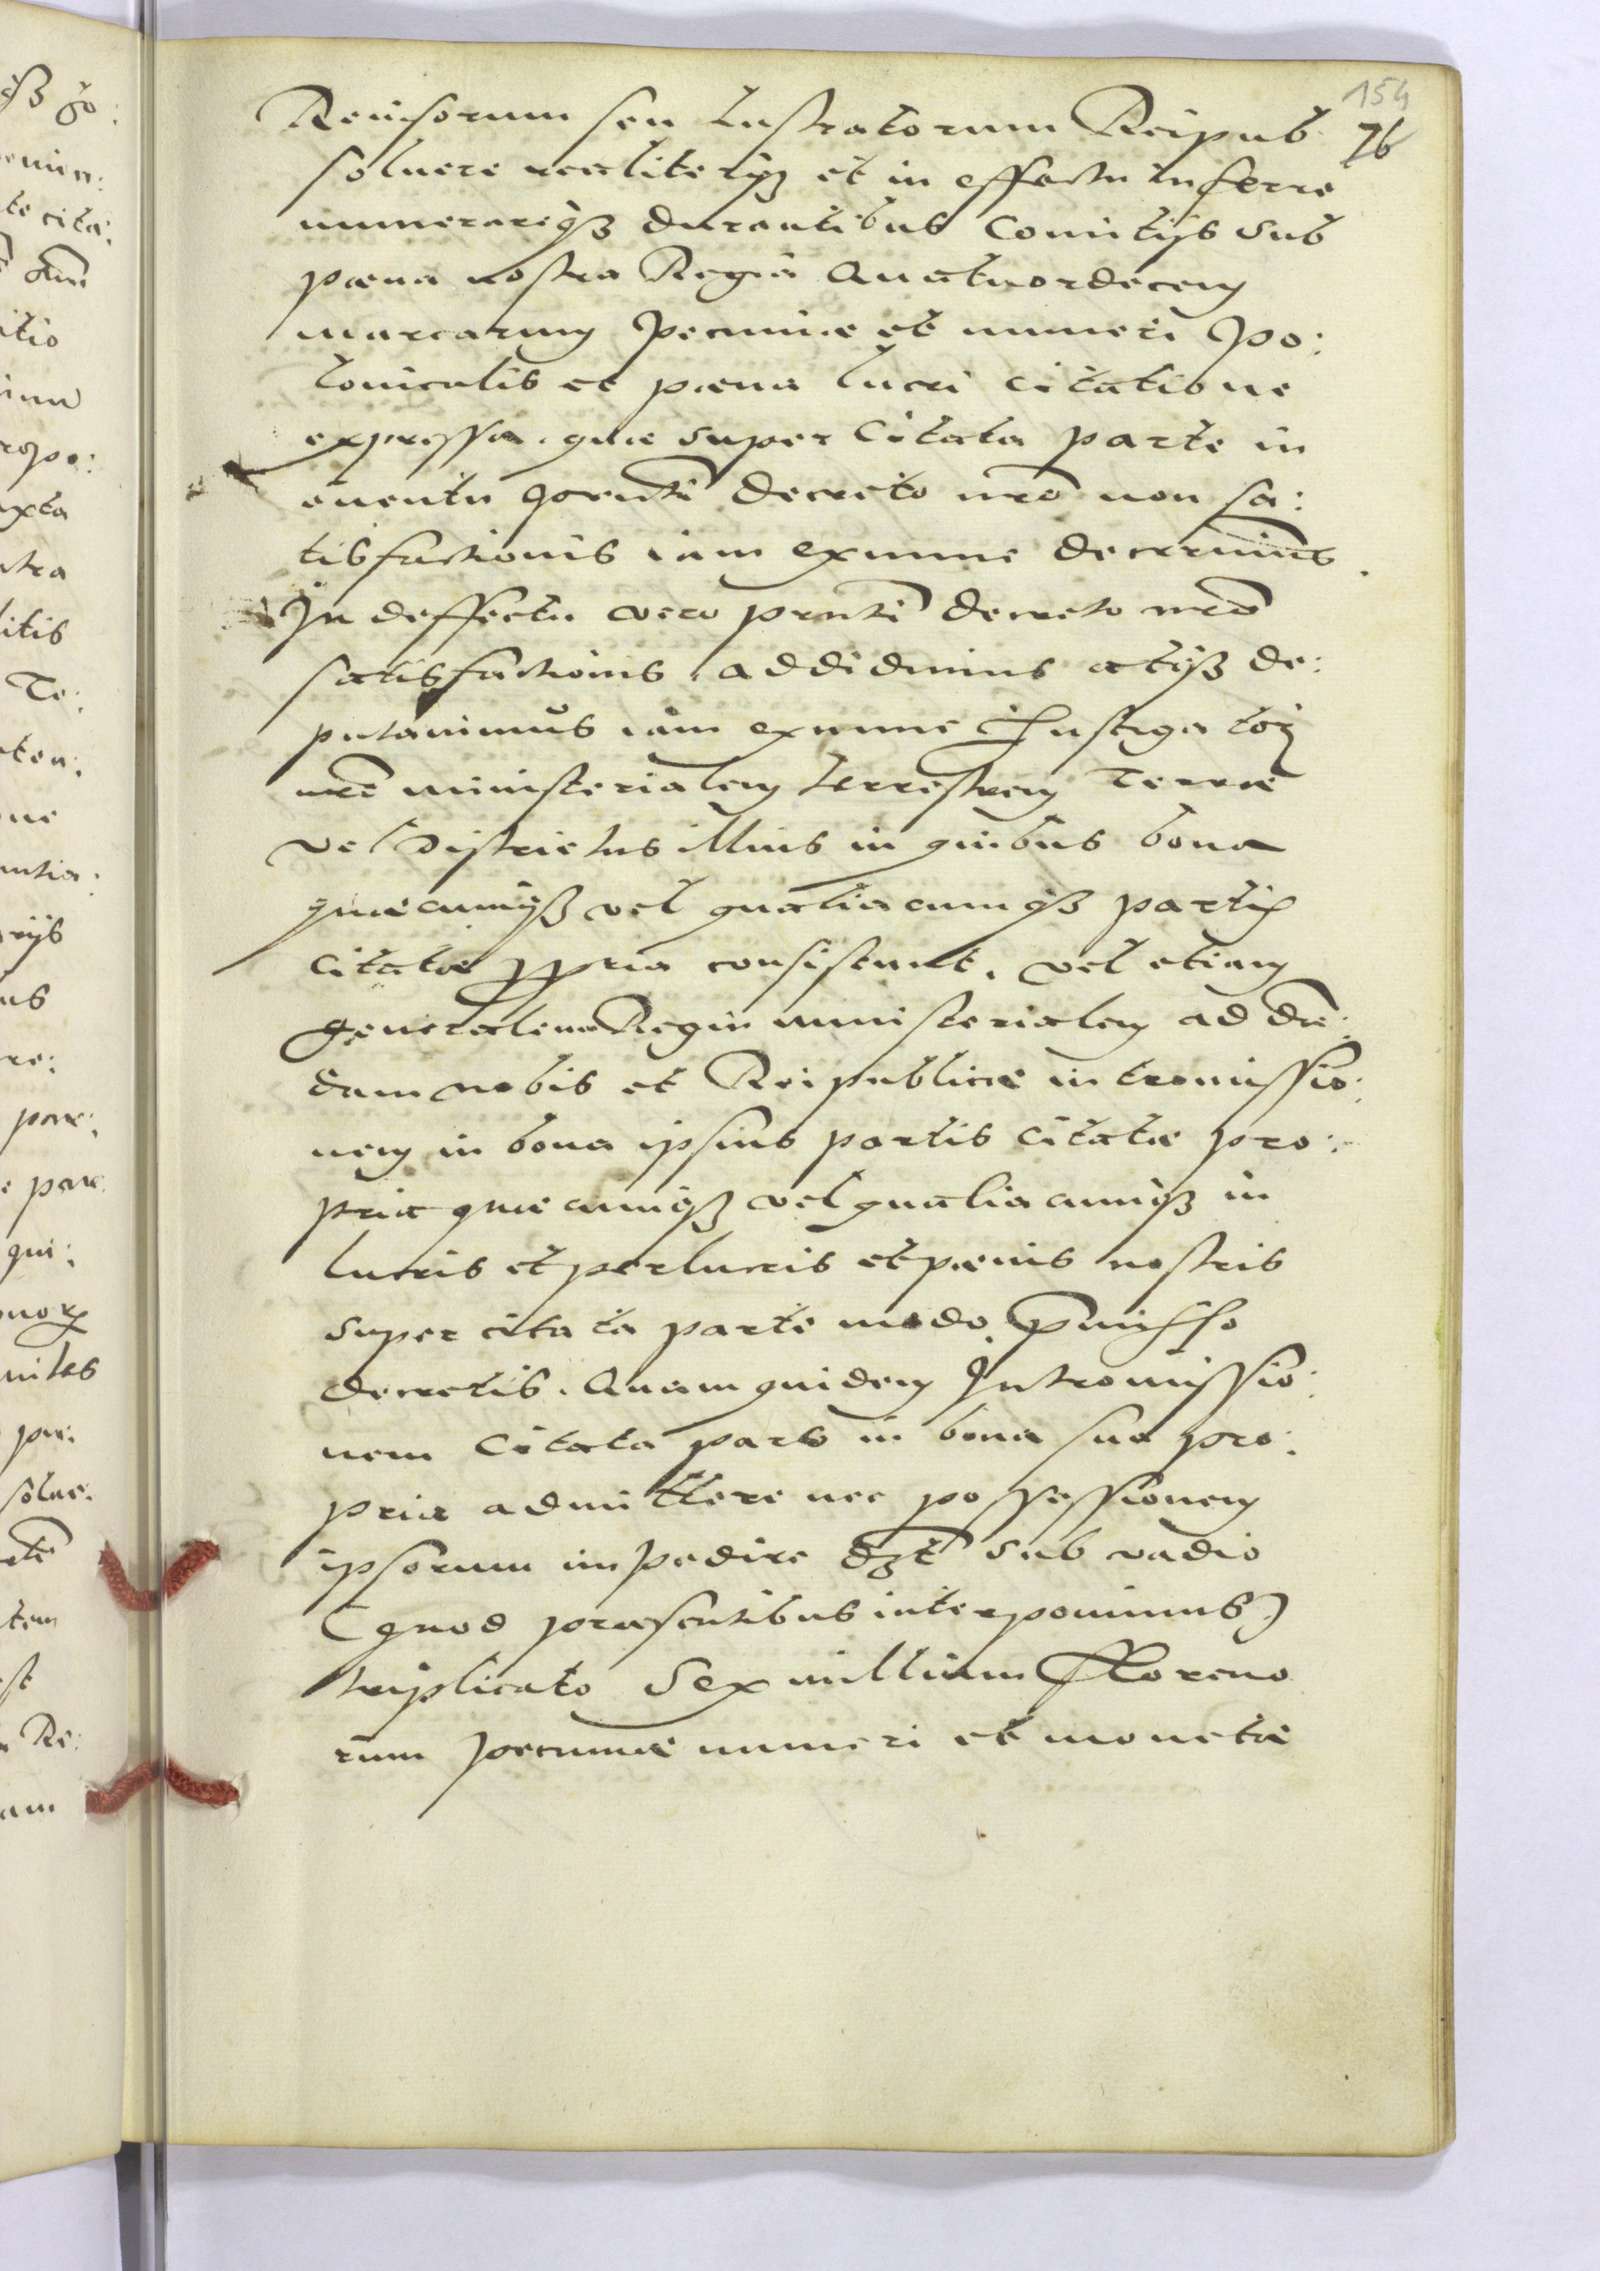 154
76
Reuisorum seu Lustratorum Reipub
soluere realiterq3 et in effectu inferre
numerareq3 durantibus Comitijs sub
pœna nostra Regia Quatuordecem
marcarum Pecuniæ et numeri Po:
lonicalis et pœna lucri citatione
expressa. quæ super Citata parte in
euentu præsnti decreto nro non sa:
tisfactionis iam exnunc decreuimus.
In deffectu vero prnti decreto nro
satisfactionis addidimus atq3 de:
putauimus iam exnunc Instigatori
nro ministerialem terrestrem Terræ
vel Districtus illius in quibus bona
quæcunq3 vel qualiacumq3 partis
citatæ ppria consistunt. vel etiam
generalem Regni ministerialem ad dan:
dam nobis et Reipublicæ intromissio:
nem in bona ipsius partis Citatæ pro:
pria quæcumq3 vel qualiacumq3 in
lucris et perlucris et pœnis nostris
super citata parte modo pmisso
decretis. Quam quidem Intromissio:
nem Citata pars in bona sua pro:
pria admittere nec possessionem
ipsorum impedire dzt sub vadio
(quod præsentibus interponimus)
triplicato Sex millium Floreno
rum pecuniæ numeri et monetæ